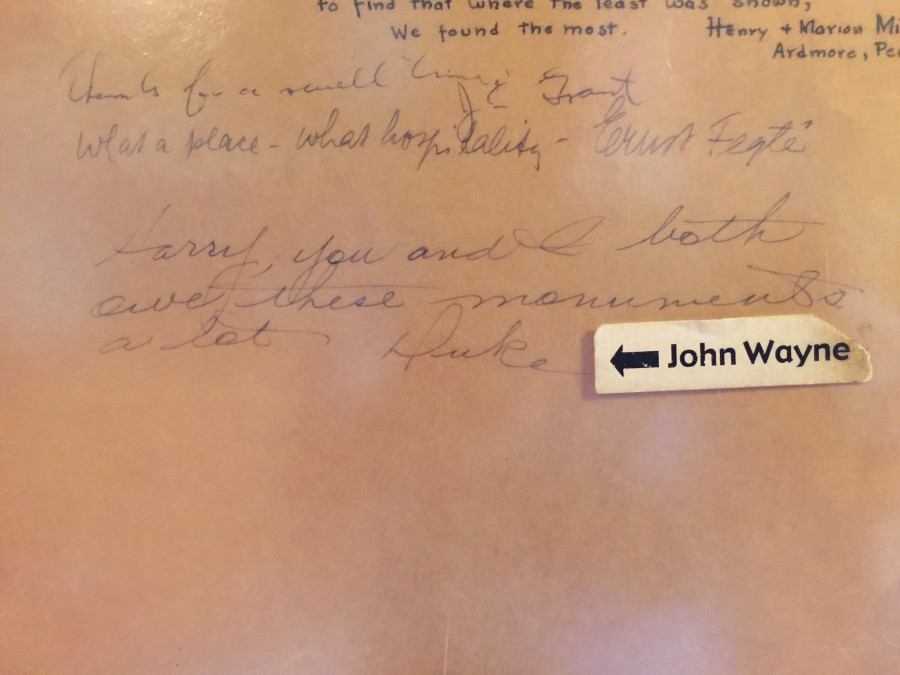 to find that where the least was shown,
We found the most. Henry + Marion
Ardmore,
Thanks for a swell time J E Grant
What a place - What hospitality - Ernst Fegté
Harry, you and I both
owe these monuments
a lot Duke
John Wayne